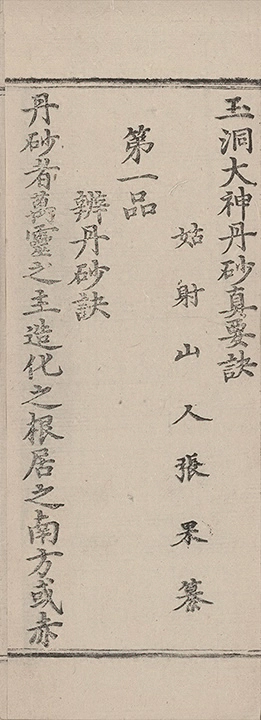 玉洞大神丹砂真要訣
姑射山人張果纂
第一品
辨丹砂訣
丹砂者萬靈之主造化之根居之南方或赤